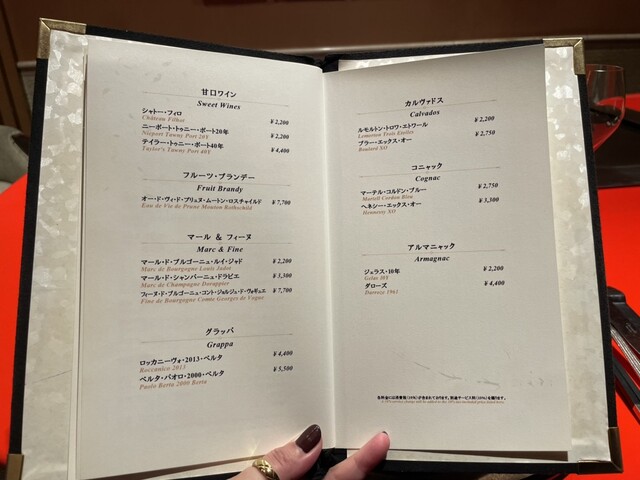 甘口ワイン
Sweet Wines
シャトー・フィロ ¥2,200
Château Filhot
ニーポート・トゥニー・ポート20年 ¥2,200
Nieport Tawny Port 20Y
テイラー・トゥニー・ポート40年 ¥4,400
Taylor's Tawny Port 40Y
フルーツ・ブランデー
Fruit Brandy
オー・ド・ヴィ・ド・プリュヌ・ムートン・ロスチャイルド ¥7,700
Eau de Vie de Prune Mouton Rothschild
マール & フィーヌ
Marc & Fine
マール・ド・ブルゴーニュ・ルイ・ジャド ¥2,200
Marc de Bourgogne Louis Jadot
マール・ド・シャンパーニュ・ドラピエ ¥3,300
Marc de Champagne Darappier
フィーヌ・ド・ブルゴーニュ・コント・ジョルジュ・ド・ヴォギュエ ¥7,700
Fine de Bourgogne Comte Georges de Vogue
グラッパ
Grappa
ロッカニーヴォ・2013・ベルタ ¥4,400
Roccanico 2013
ベルタ・パオロ・2000・ベルタ ¥5,500
Paolo Berta 2000 Berta
カルヴァドス
Calvados
ルモルトン・トロワ・エトワール ¥2,200
Lemorton Trois Etoiles
ブラー・エックス・オー ¥2,750
Boulard XO
コニャック
Cognac
マーテル・コルドン・ブルー ¥2,750
Martell Cordon Bleu
ヘネシー・エックス・オー ¥3,300
Hennessy XO
アルマニャック
Armagnac
ジェラス・10年 ¥2,200
Gelas 10Y
ダローズ ¥4,400
Darroze 1961
各料金には消費税(10%)が含まれております。別途サービス料(10%)を賜ります。